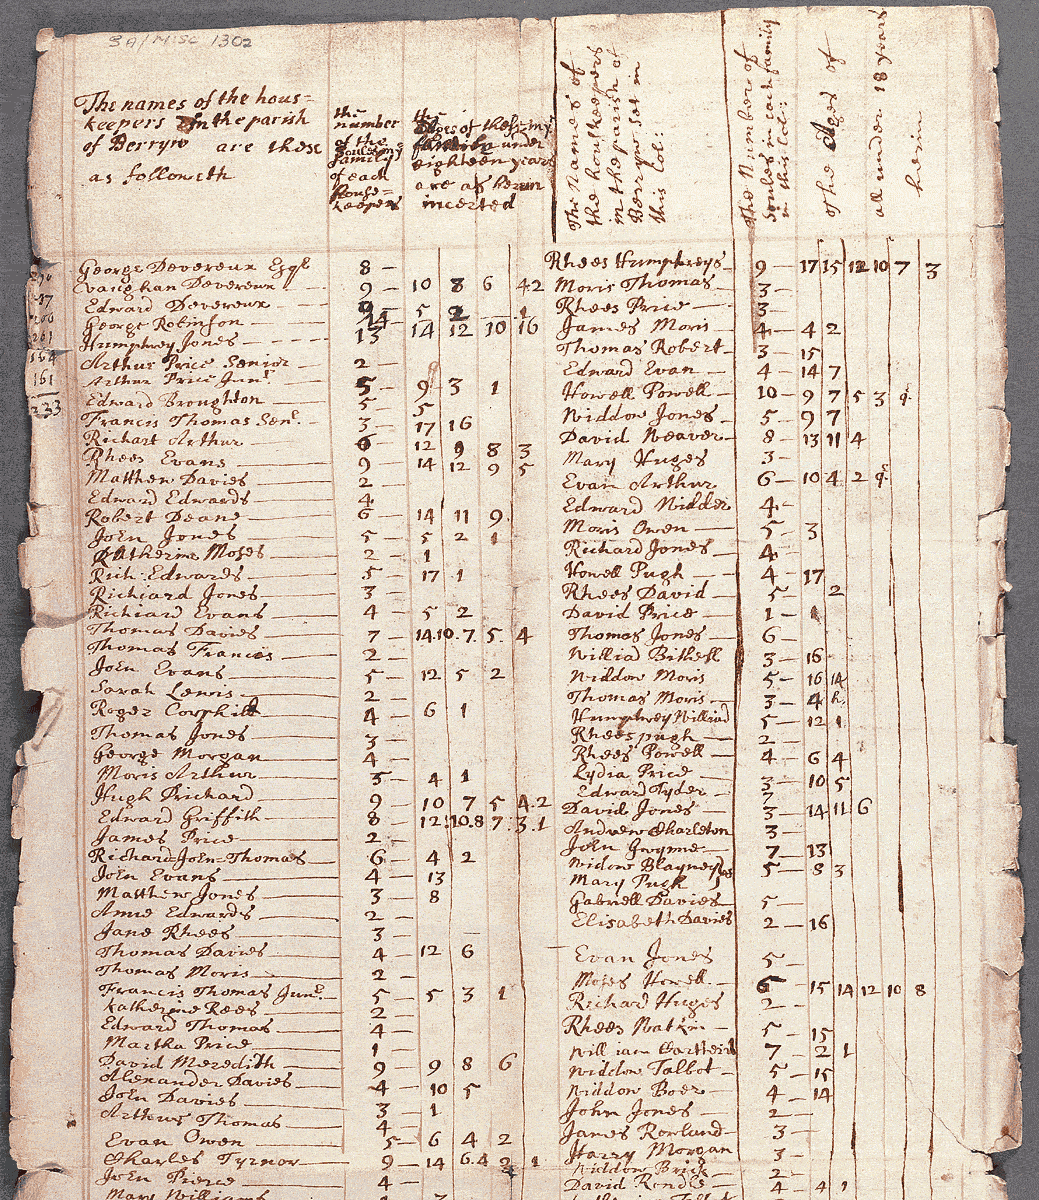 SA/MISC 1302
The names of the hous=
keepers In the parish
of Berryw are these
as followeth
the
number
of the
soules in ye
family
of each
House=
keepers
the
Ages of the
family under
eighteen years
are as herein
incerted
The Names of
the houskeepers
in the parish of
Berryw set in
this Col:
The Number of
soules in each family
in this Col:
The Ages of
all under 18 years
herein
161
233
George Devereux Esqr 8
Vaughan Devereux 9 10 8 6 4 2
Edward Devereux 5 2 1
George Robinson 14 14 12 10 16
Humphrey Jones 13
Arthur Price Senior 2
Arthur Price Junr 5 9 3 1
Edward Broughton 5 5
Francis Thomas Senr 3 17 16
Richart Arthur 6 12 9 8 3
Rhees Evans 9 14 12 9 5
Matthew Davies 2
Edward Edwards 4
Robert Deane 6 14 11 9
John Jones 5 5 2 1
Katherine Moses 2 1
Rich: Edwards 5 17 1
Richiard Jones 3
Richiard Evans 4 5 2
Thomas Davies 7 14 10 7 5 4
Thomas Francis 2
John Evans 5 12 5 2
Sarah Lewis 2
Roger Corphill 4 6 1
Thomas Jones 3
George Morgan 4
Moris Arthur 5 4 1
Hugh Prichard 9 10 7 5 4 2
Edward Griffith 8 12 10 8 7 3 1
James Price 2
Richard John Thomas 6 4 2
John Evans 4 13
Matthew Jones 3 8
Anne Edwards 2
Jane Rhees 3
Thomas Davies 4 12 6
Thomas Moris 2
Francis Thomas Junr 5 5 3 1
Katherine Rees 2
Edward Thomas 4
Martha Price 1
David Meredith 9 9 8 6
Alexander Davies 4 10 5
John Davies 3 1
Arthur Thomas 4
Evan Owen 5 6 4 2
Charles Tyrnor 9 14 6 4 2 1
John Pierce 4
Mary Williams
Rhees Humphreys 9 17 15 12 10 7 3
Moris Thomas 3
Rhees Price 3
James Moris 4 4 2
Thomas Robert 3 15
Edward Evan 4 14 7
Howell Powell 10 9 7 5 3
Widdow Jones 5 9 7
David Weaver 8 13 11 4
Mary Huges 3
Evan Arthur 6 10 4 2
Edward Kidder 4
Moris Owen 5 3
Richard Jones 4
Howell Pugh 4 17
Rhees David 5 2
David Price 1 1
Thomas Jones 6
Williad Bithell 3 16
Widdow Moris 5 16 14
Thomas Moris 3 4
Humphrey Williad 5 12 1
Rhees pugh 2
Rhees Powell 4 6 4
Lydia Price 3 10 5
Edward Tyder 3
David Jones 3 14 11 6
Andrew Charleton 3
John Gwynne 7 13
Widow Blayney 5 8 3
Mary Pugh
Gabriell Davies 5
Elisabeth Davies 2 16
Evan Jones 5
Moses Howell 6 15 14 12 10 8
Richard Huges 2
Rhees Watkin 5 15
William 7 2 1
Widdow Talbot 5 15
Widdow Boer 4 14
John Jones 2
James Rowland 3
Harry Morgan 3
Widdow Brick 2
David Rendle 4 4 1